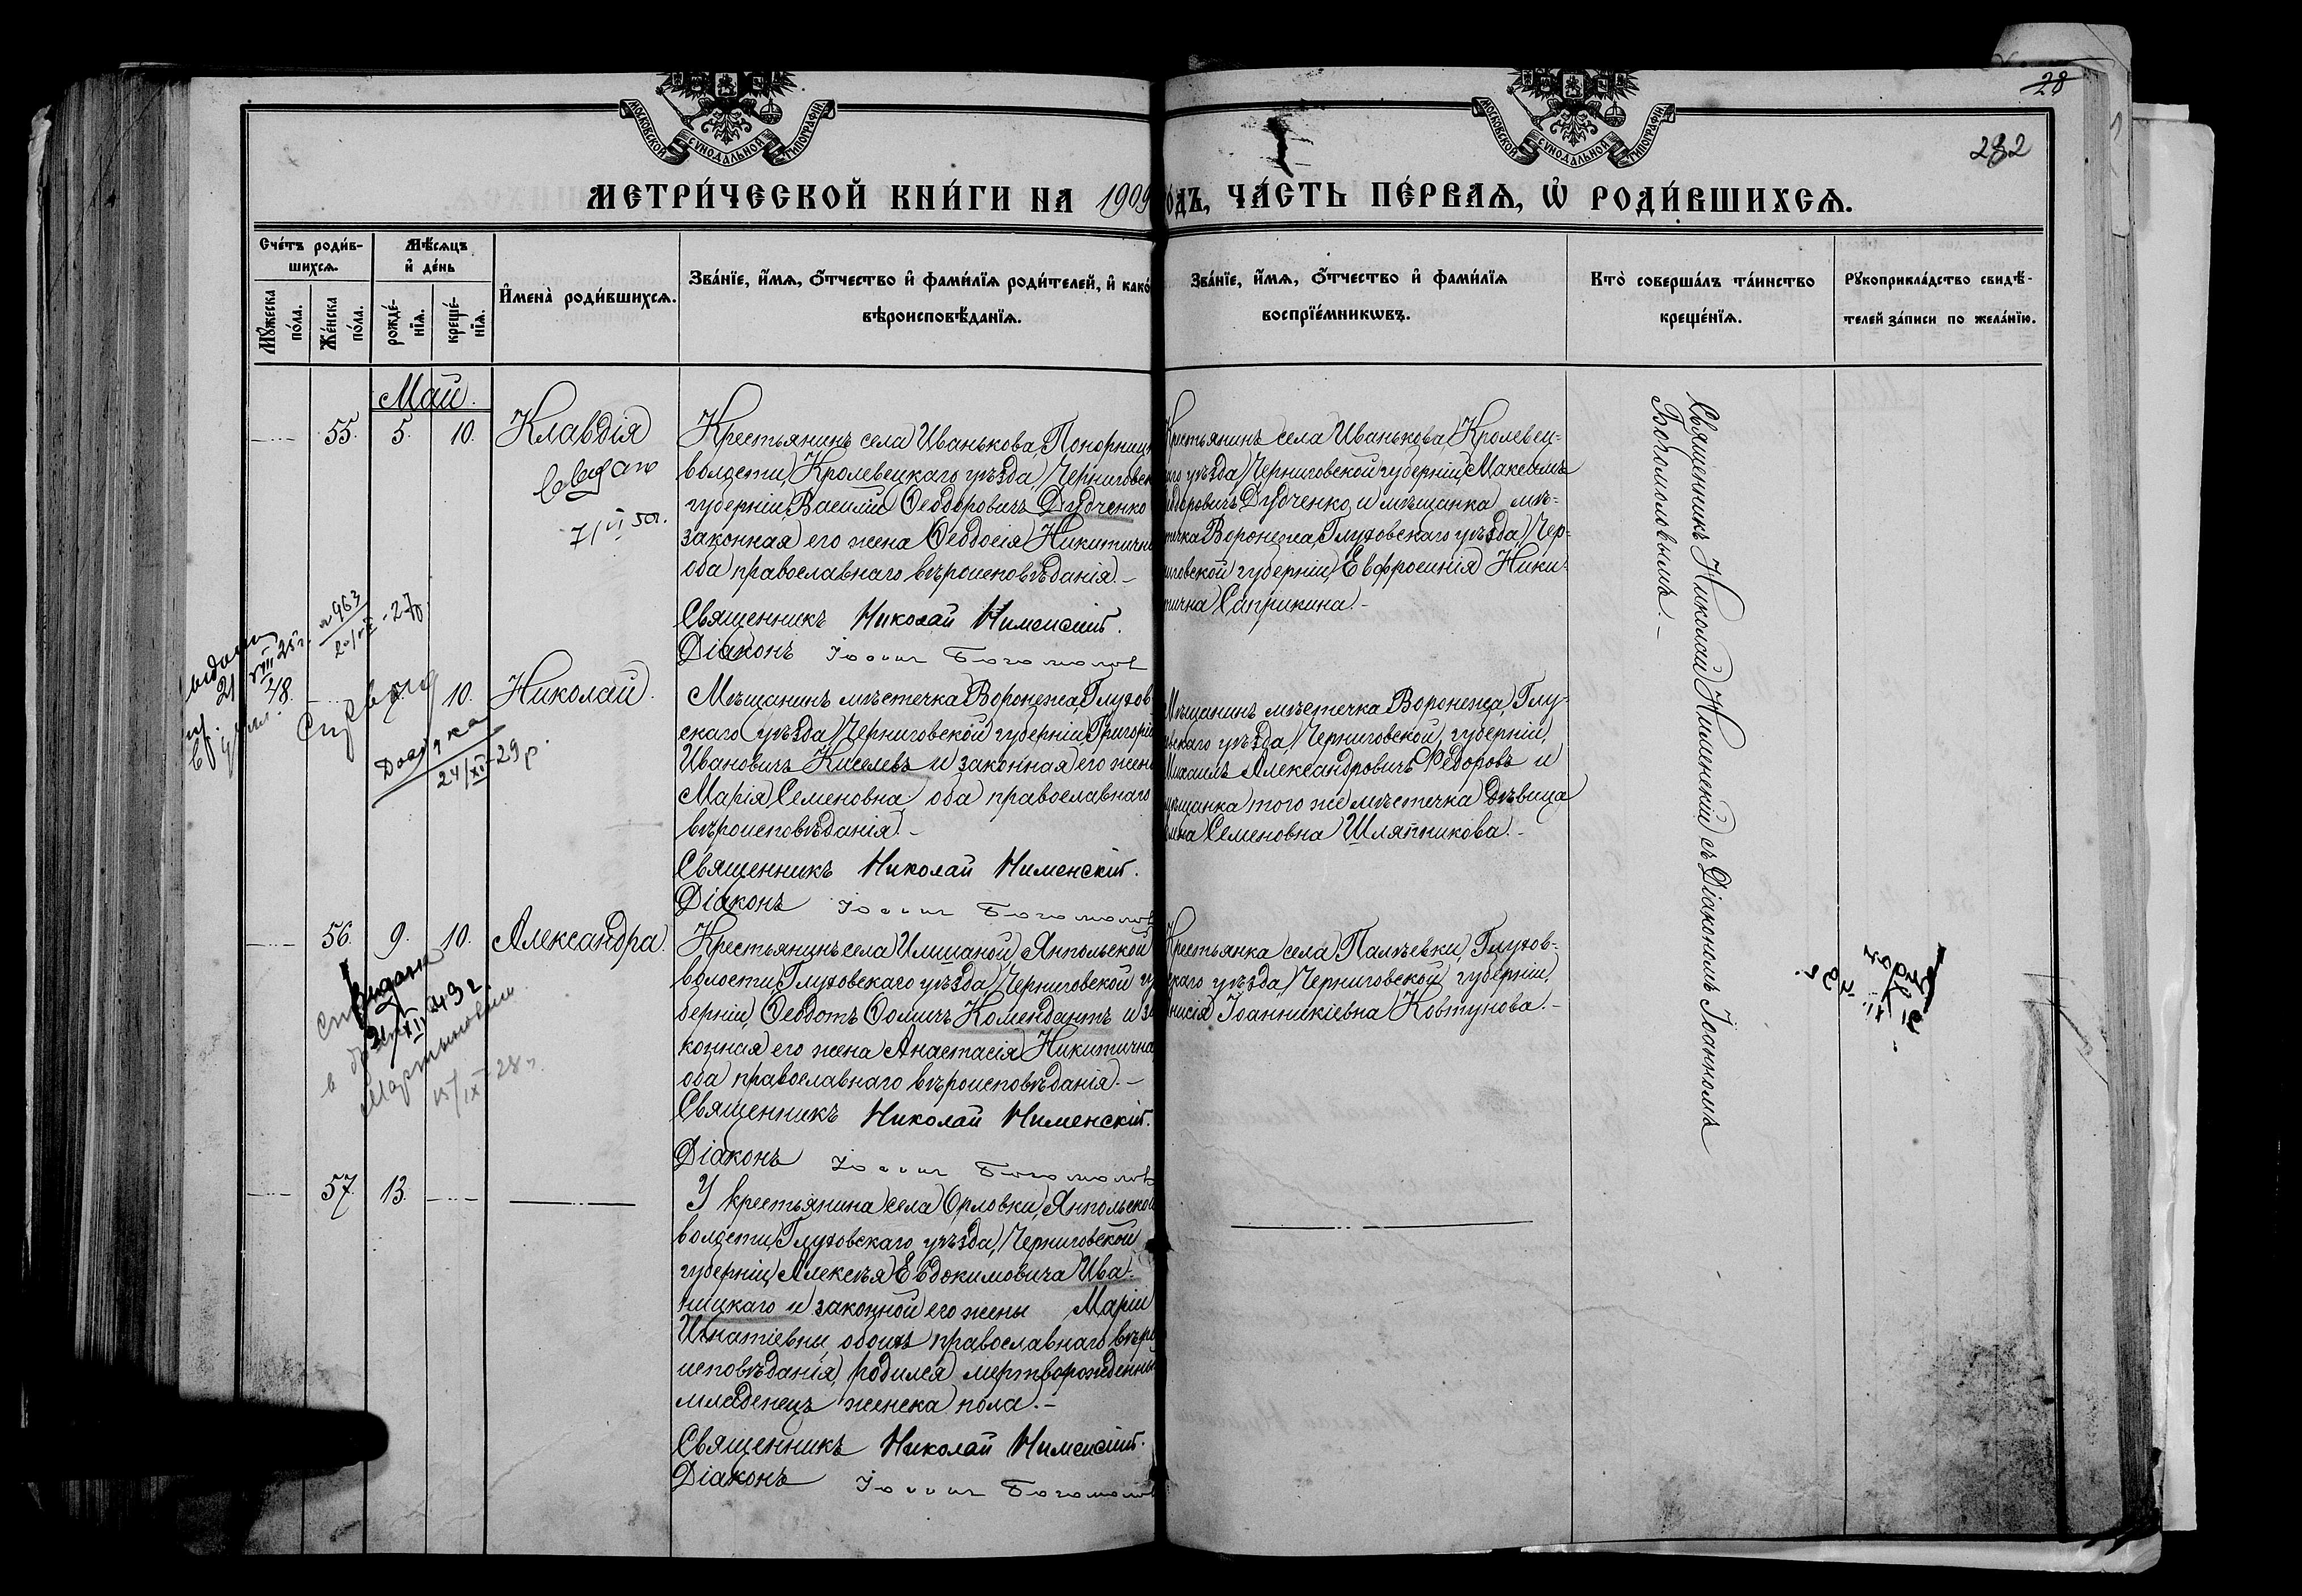 28
282
МОСКОВСКОЙ СѴНОДАЛЬНОЙ ТИПОГРАФІИ
МОСКОВСКОЙ СѴНОДАЛЬНОЙ ТИПОГРАФІИ
МЕТРИ́ЧЕСКОЙ КНИ́ГИ НА 1909 ГОДЪ, ЧА́СТЬ ПЕ́РВАѦ, Ѡ҆ РОДИ́ВШИХСѦ.
Сче́тъ роди́в-
шихсѧ.
Мѣ́сѧцъ
и҆ де́нь
Мꙋ́жеска
по́ла.
Же́нска
по́ла.
рожде́-
нїѧ.
креще́-
нїѧ.
И҆мена̀ роди́вшихсѧ.
Зва́нїе, и҆́мѧ, ѻ҆́тчество и҆ фами́лїѧ роди́телей, и҆ како́
вѣроисповѣ́данїѧ.
Зва́нїе, и҆́мѧ, ѻ҆́тчество и҆ фами́лїѧ
воспрїе́мникѡвъ.
Кто̀ соверша́лъ та́инство
креще́нїѧ.
Рꙋкоприкла́дство свидѣ́-
телей за́писи по жела́нїю.
Май.
55. 5. 10. Клавдія
Крестьянинъ села Иванькова, Понорниц
волости, Кролевецкаго уѣзда, Черниговск
губерніи, Василій Ѳеодоровичъ Дудченко
законная его жена Ѳеодосія Никитична
оба православнаго вѣроисповѣданія.-
Священникъ Николай Нименскій.
Діаконъ Іоаннъ Богомолов
Крестьянинъ села Иванькова, Кролевец-
каго уѣзда, Черниговской губерніи, Максимъ
еодоровичъ Дудченко, и мѣщанка мѣ-
течка Воронежа, Глуховскаго уѣзда, Чер-
ниговской губерніи, Евфросинія Ники-
тична Саприкина.-
Священникъ Николай Нименскій съ Діакономъ Іоанномъ
Богомоловымъ.-
7/VI 50г.
№963
-27р.
48. 10. Николай.
Справка
Довідка
24/XII-29р.
Мѣщанинъ мѣстечка Воронежа, Глухов-
скаго уѣзда, Черниговской губерніи, Григорій
Ивановичъ Киселевъ и законная его жена
Марія Семеновна оба православнаго
вѣроисповѣданія.-
Священникъ Николай Нименскій.
Діаконъ Іоаннъ Богомолов
Мѣщанинъ мѣстечка Воронежа, Глу-
овскаго уѣзда, Черниговской губерніи,
Михаилъ Александровичъ Федоровъ и
мѣщанка того же мѣстечка дѣвица
Семеновна Шляпникова.-
56. 9. 10. Александра.
15/IX-28г.
Крестьянинъ села Имшаной, Янпольской
волости, Глуховскаго уѣзда, Черниговской гу
берніи, Ѳеодотъ Ѳомичъ Комендантъ и за
конная его жена Анастасія Никитична
оба православнаго вѣроисповѣданія.-
Священникъ Николай Нименскій.
Діаконъ Іоаннъ Богомолов
Крестьянка села Палѣевки, Глухов-
скаго уѣзда, Черниговской губерніи,
Іоанникіевна Ковтунова.-
57. 13.
У крестьянина села Орловки, Янпольской
волости, Глуховскаго уѣзда, Черниговской
губерніи, Алексѣя Евдокимовича Ива-
ницкаго и законной его жены Маріи
Игнатіевны, обоихъ православнаго вѣро
исповѣданія, родился мертворожденны
младенецъ женска пола.-
Священникъ Николай Нименскій.
Діаконъ Іоаннъ Богомолов